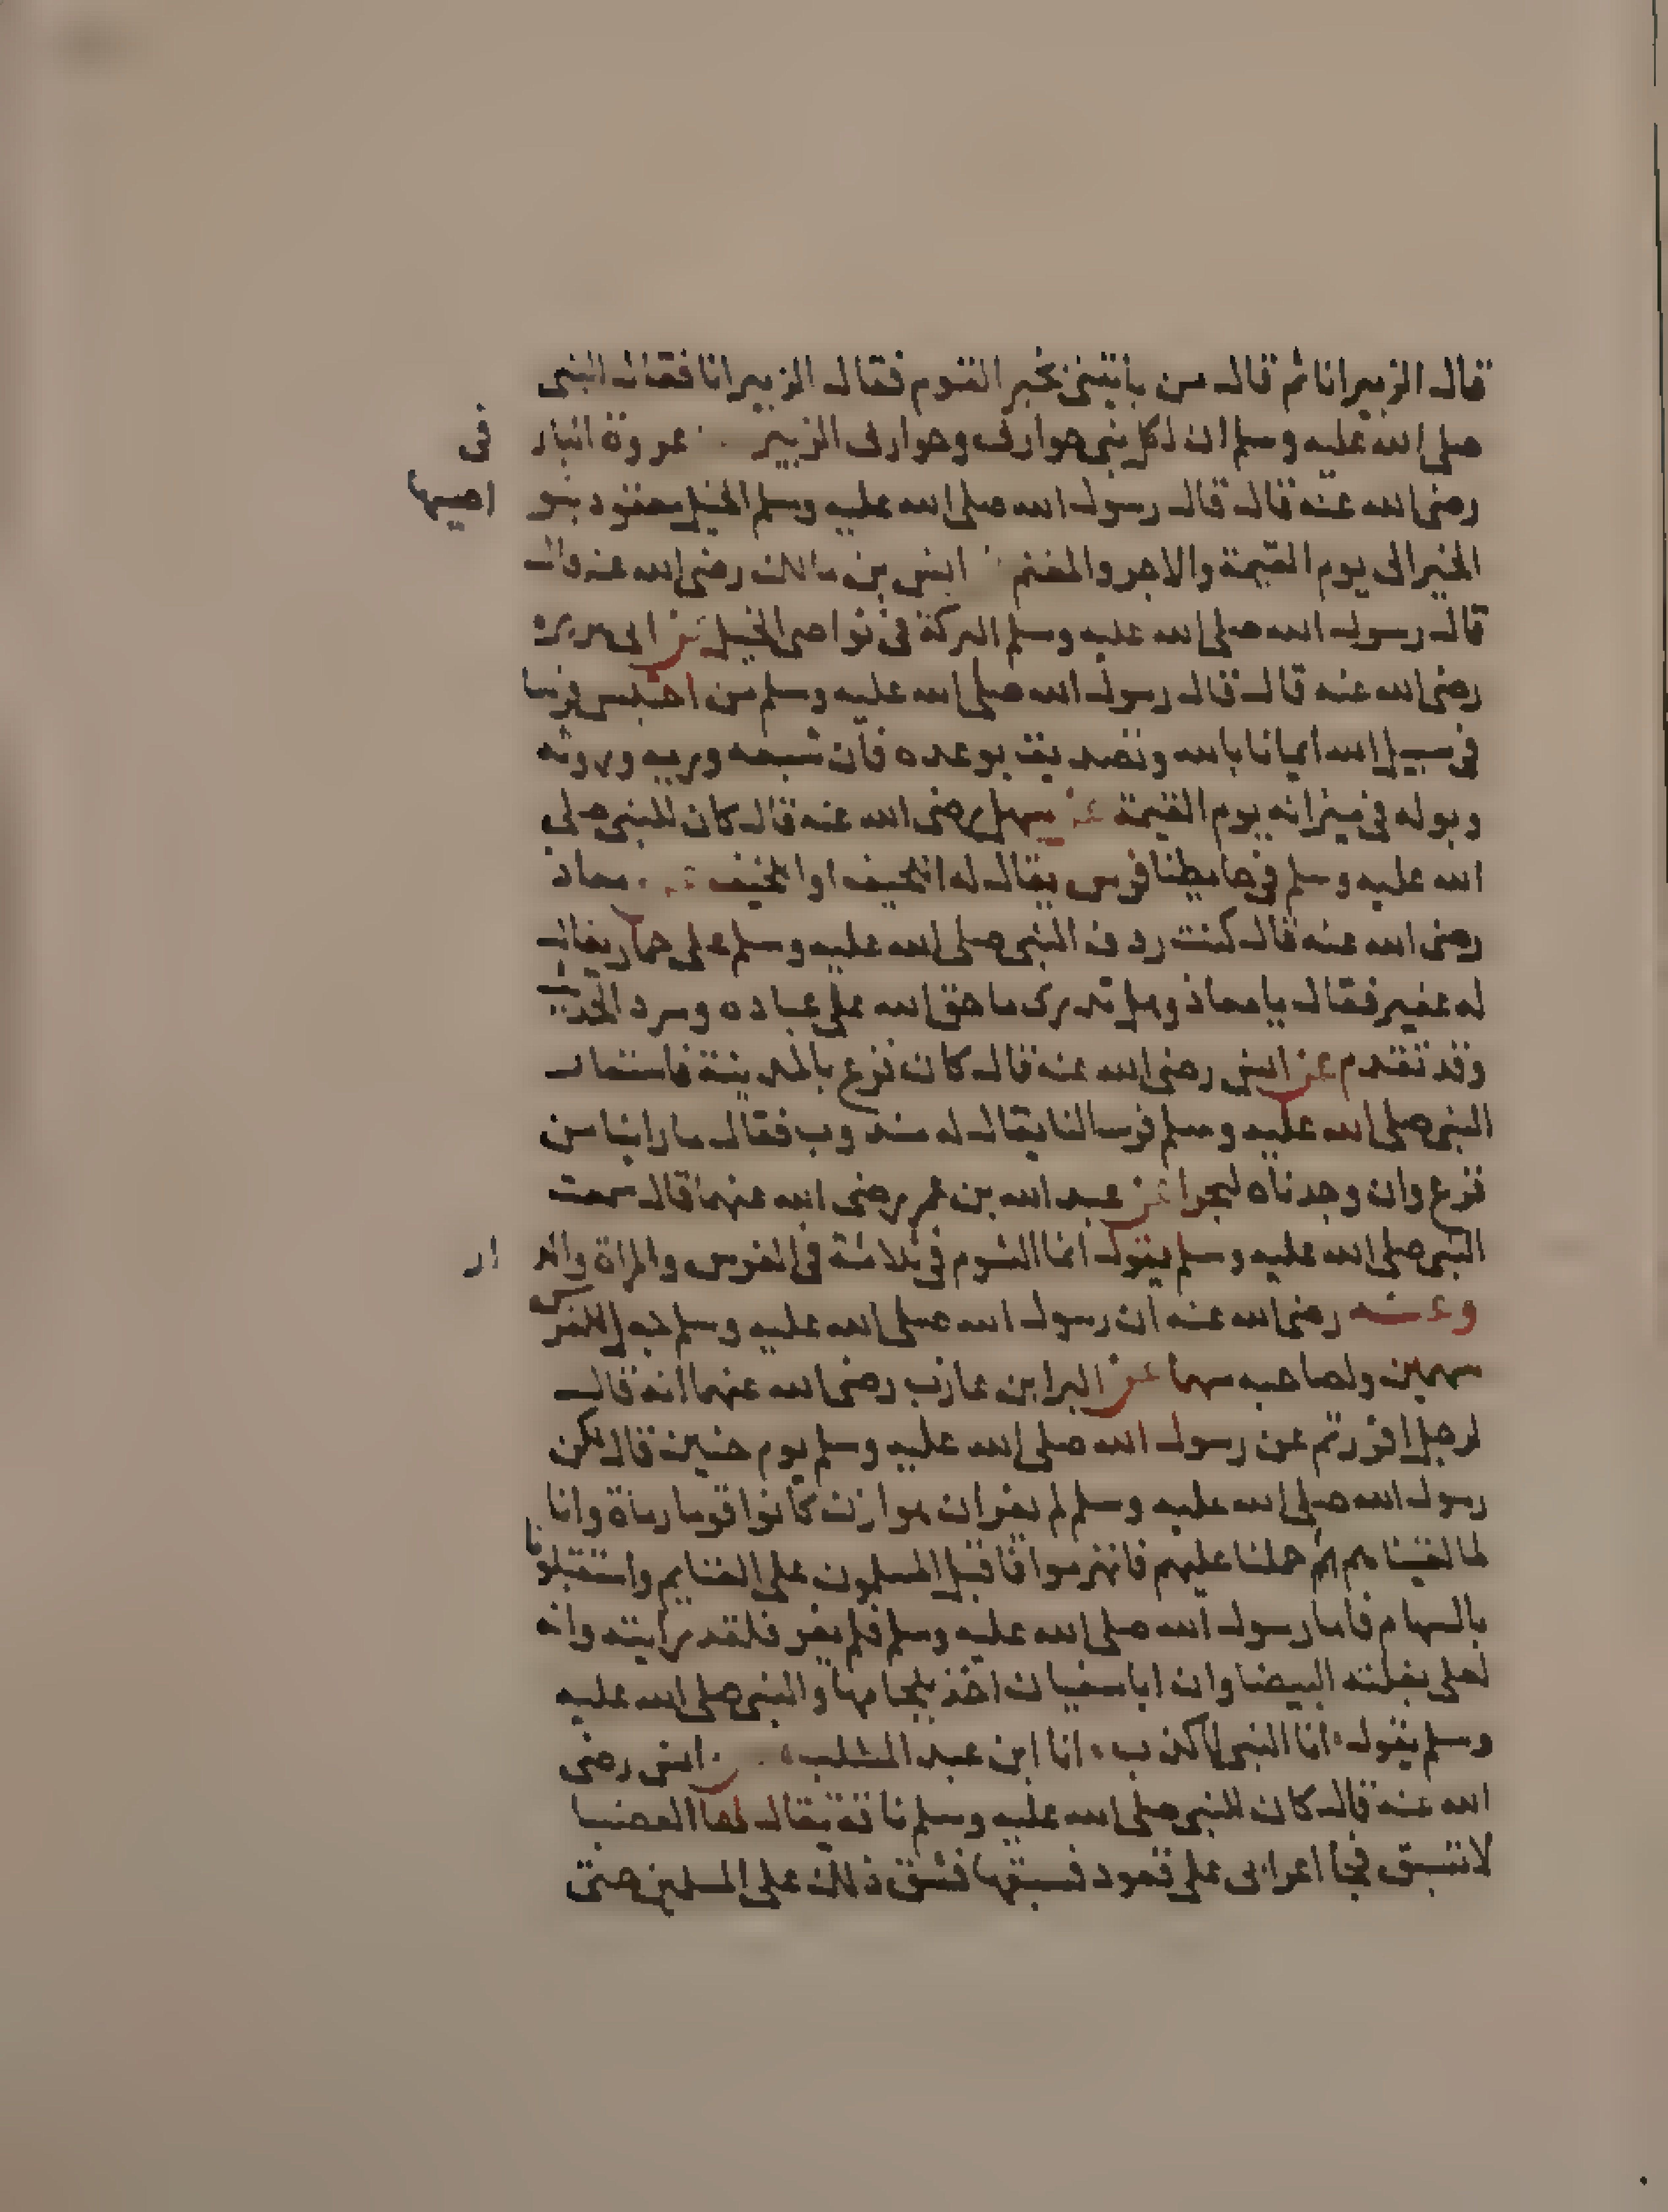 قال الزبير انا ثم قال من يأتيني بخبر القوم فقال الزبير انا فقال النبي
صلى الله عليه وسلم ان لكل نبي حواري وحواري الزبير عروة البار
في
رضى الله عنه قال قال رسول الله صلى الله عليه وسلم الخيل معقود بنو
اصيها
الخير الى يوم القيمة والاجر والمغنم انس بن مالك رضى الله عنه قال
قال رسول الله صلى الله عليه وسلم البركة في نواصى الخيل عن ابى هريرة
رضى الله عنه قال قال رسول الله صلى الله عليه وسلم من احتبس فرسا
في سبيل الله ايمانا بالله وتصديق بوعده فان شبعه وريه وروثه
وبوله في ميزانه يوم القيمة عن سهل رضى الله عنه قال كان للنبي صلى
الله عليه وسلم في حايطنا فرس يقال له اللحيف او اللخيف عن معاذ
رضى الله عنه قال كنت ردف النبي صلى الله عليه وسلم على حمار يقال
له عفير فقال يا معاذ وهل تدرى ما حق الله على عباده وسرد الحديث
وقد تقدم عن انس رضى الله عنه قال كان فزع بالمدينة فاستعار
النبي صلى الله عليه وسلم فرسا لنا يقال له مندوب فقال ما راينا من
فزع وان وجدناه لبحرا عن عبد الله بن عمر رضى الله عنهما قال سمعت
النبي صلى الله عليه وسلم يقول انما الشوم في ثلاثة في الفرس والمراة والد
ار
وعنه رضى الله عنه ان رسول الله صلى الله عليه وسلم جعل للفرس
سهمين ولصاحبه سهما عن البرا بن عازب رضى الله عنهما انه قال
لرجل افررتم عن رسول الله صلى الله عليه وسلم يوم حنين قال لكن
رسول الله صلى الله عليه وسلم لم يفر ان هوازن كانوا قوما رماة وانا
لما لقيناهم حملنا عليهم فانهزموا فاقبل المسلمون على الغنايم واستقبلونا
بالسهام فاما رسول الله صلى الله عليه وسلم فلم يفر فلقد رايته وانه
لعلى بغلته البيضا وان ابا سفيان اخذ بلجامها والنبي صلى الله عليه
وسلم يقول انا النبي لا كذب انا ابن عبد المطلب انس رضى
الله عنه قال كان للنبي صلى الله عليه وسلم ناقة يقال لها العضبا
لا تسبق فجا اعرابى على قعود فسبقها فشق ذلك على المسلمين حتى